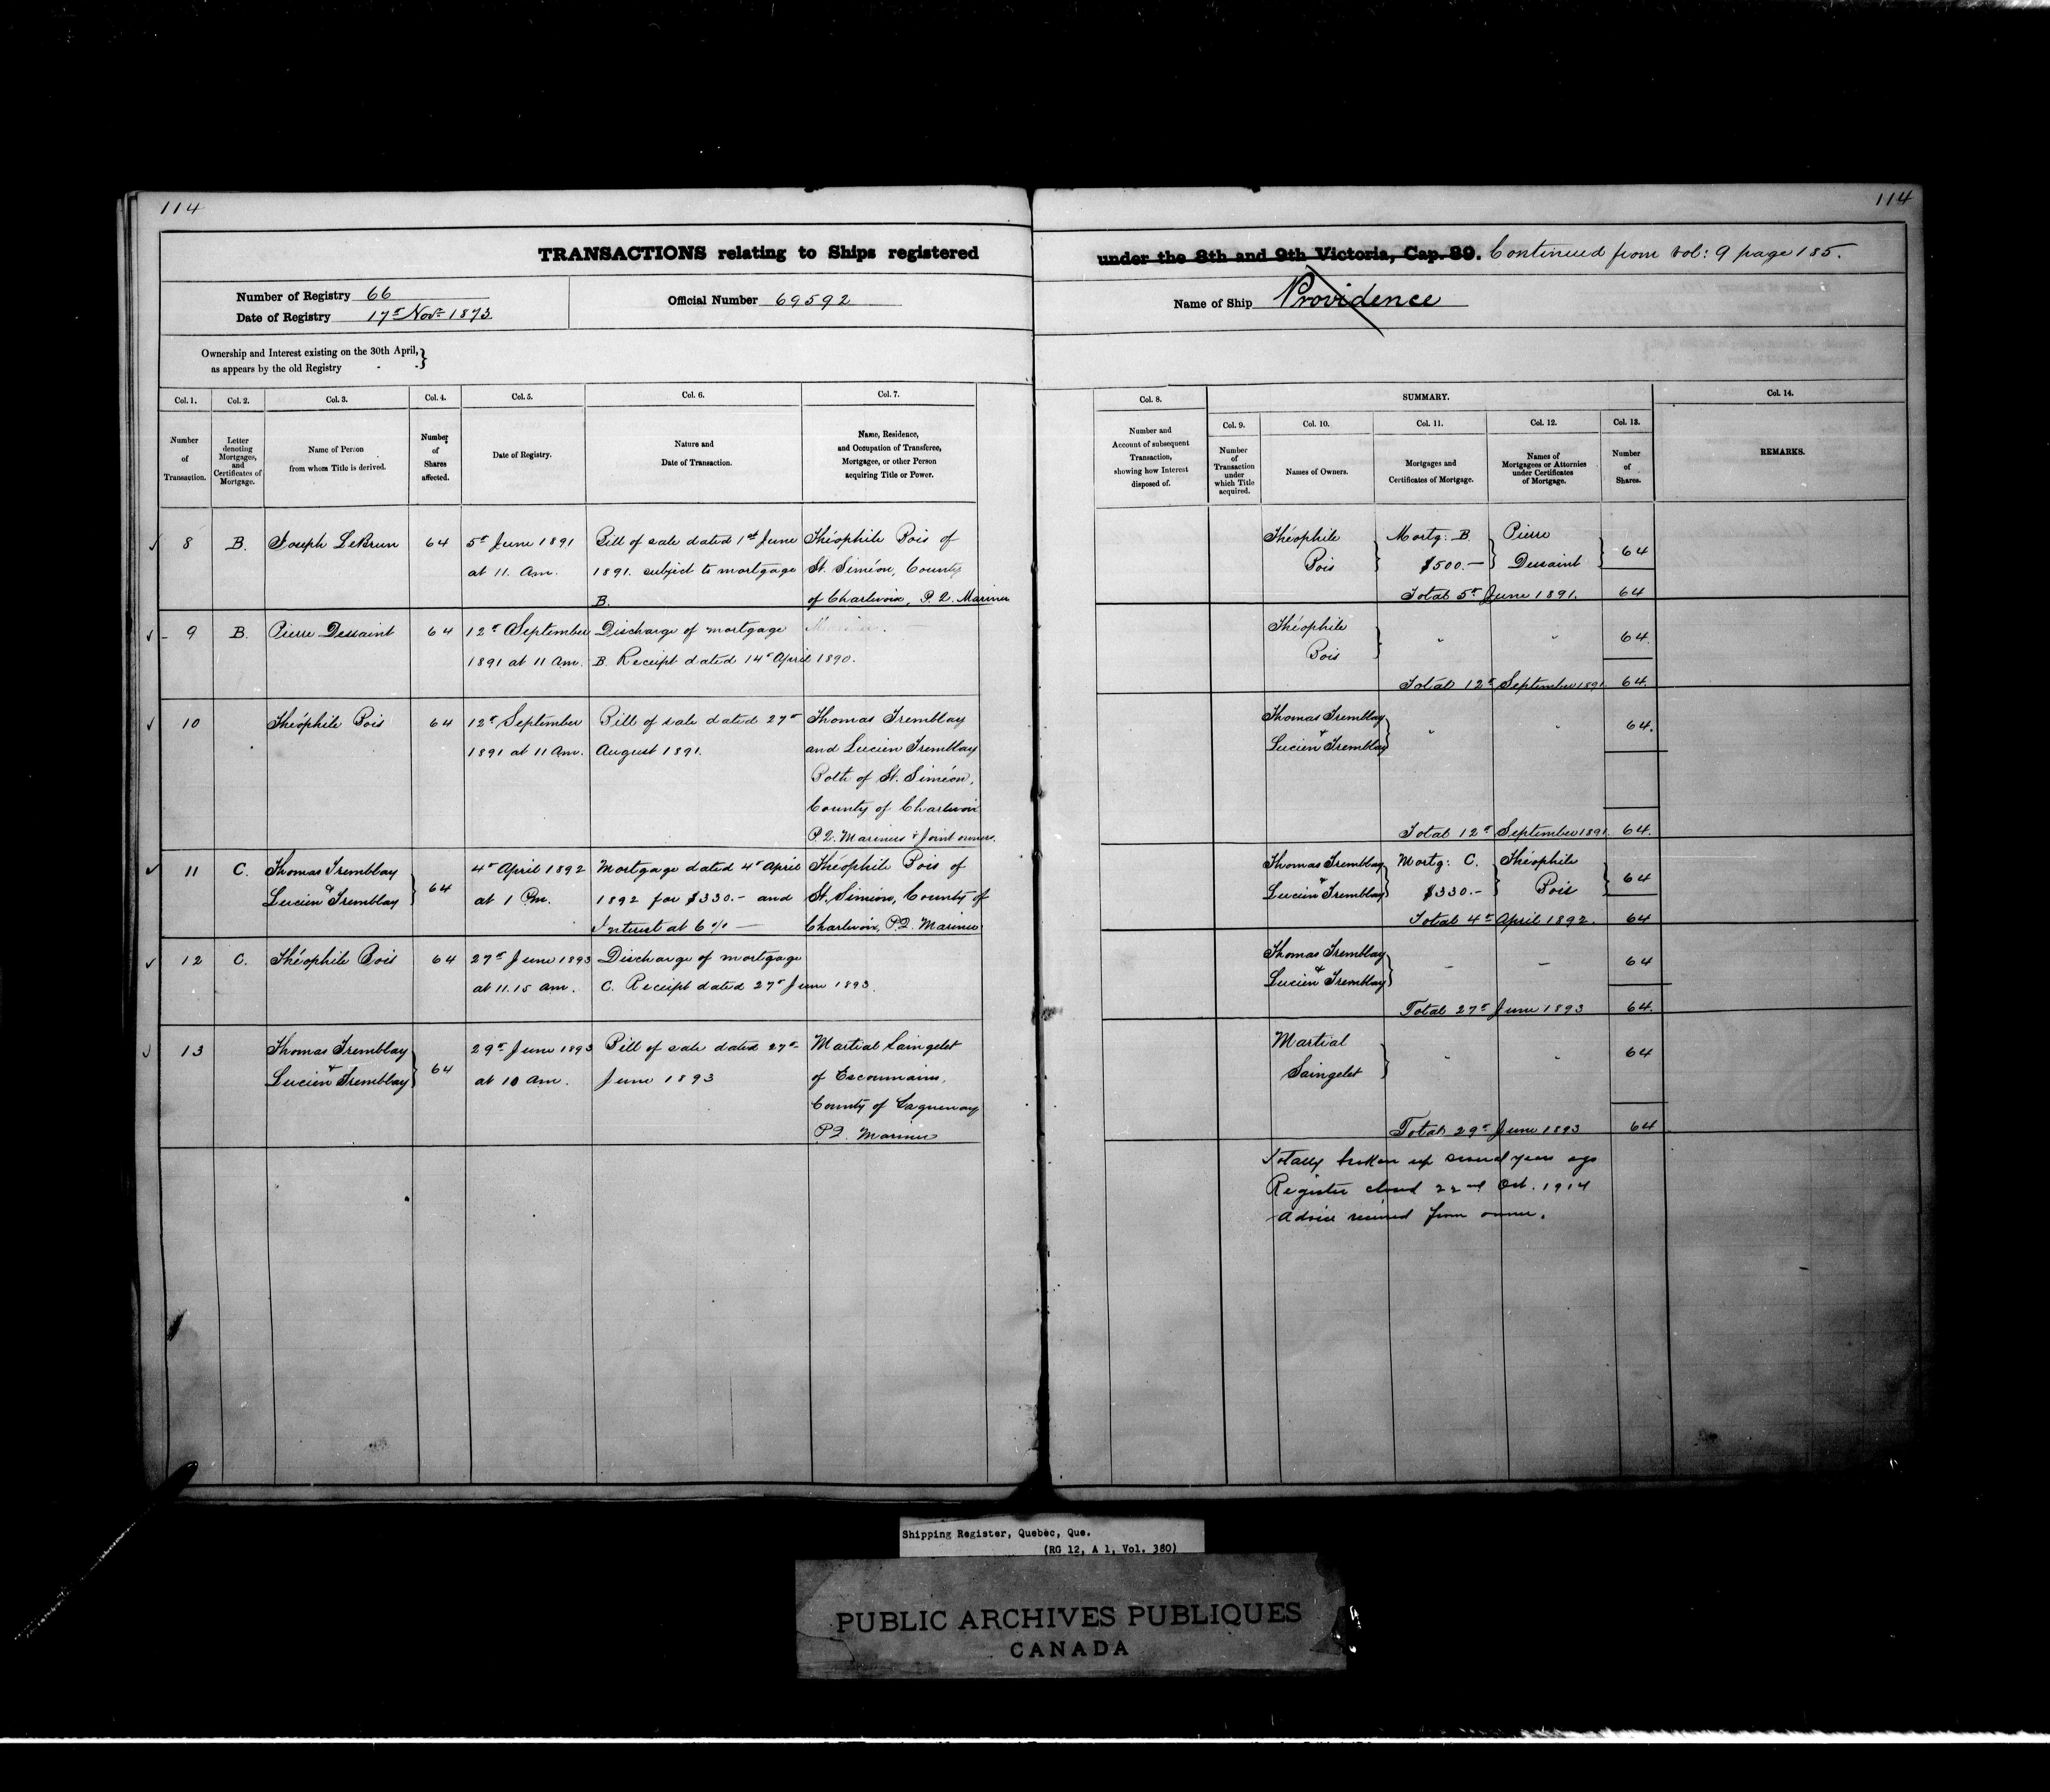 114
114
TRANSACTIONS relating to Ships registered
under the 8th and 9th Victoria, Cap. 89. Continued from vol: 9 page 185.
Number of Registry 66
Date of Registry 17th Nov. 1873.
Official Number 69592
Name of Ship Providence
Ownership and Interest existing on the 30th April,
as appears by the old Registry - - }
Col. 1. Col. 2. Col. 3. Col. 4. Col. 5. Col. 6. Col. 7.
Number of Transaction.
Letter denoting Mortgages, and Certificates of Mortgage.
Name of Person from whom Title is derived.
Number of Shares affected.
Date of Registry.
Nature and Date of Transaction.
Name, Residence, and Occupation of Transferee, Mortgagee, or other Person acquiring Title or Power.
Col. 8. SUMMARY. Col. 14.
Col. 9. Col. 10. Col. 11. Col. 12. Col. 13.
Number and Account of subsequent Transaction, showing how Interest disposed of.
Number of Transaction under which Title acquired.
Names of Owners.
Mortgages and Certificates of Mortgage.
Names of Mortgagees or Attornies under Certificates of Mortgage.
Number of Shares.
REMARKS.
8 B. Joseph LeBrun 64 5th June 1891 Bill of sale dated 1st June Théophile Bois of
at 11. Am. 1891. subject to mortgage St. Siméon, County
B. of Charlevoix, P.Q. Mariner
Théophile Mortg: B. Pierre
Bois $500.— Dessaint 64
Total 5th June 1891. 64
9 B. Pierre Dessaint 64 12th September Discharge of mortgage
1891 at 11 Am. B. Receipt dated 14th April 1890.
Théophile " " 64.
Bois
Total 12th September 1891 64.
10 Théophile Bois 64 12th September Bill of sale dated 27th Thomas Tremblay
1891 at 11 Am. August 1891. and Lucien Tremblay
Both of St. Siméon,
County of Charlevoix
P.Q. Mariners & Joint owners.
Thomas Tremblay " " 64.
& Lucien Tremblay
Total 12th September 1891. 64.
11 C. Thomas Tremblay 4th April 1892 Mortgage dated 4th April Théophile Bois of
& Lucien Tremblay 64 at 1 Pm. 1892 for $330.- and St. Siméon, County of
Interest at 6% — Charlevoix, P.Q. Mariner
Thomas Tremblay Mortg: C. Théophile
& Lucien Tremblay $330.- Bois 64
Total 4th April 1892. 64
12 C. Théophile Bois 64 27th June 1893 Discharge of mortgage
at 11.15 am. C. Receipt dated 27th June 1893.
Thomas Tremblay — — 64
& Lucien Tremblay
Total 27th June 1893 64.
13 Thomas Tremblay 29th June 1893 Bill of sale dated 27th Martial Saingelet
& Lucien Tremblay 64 at 10 am. June 1893 of Escoumains,
County of Saguenay
P.Q. Mariner
Martial " " 64
Saingelet
Total 29th June 1893 64
Totally broken up several years ago
Register closed 22nd Oct. 1914
Advice received from owner.
Shipping Register, Quebec, Que.
(RG 12, A 1, Vol. 380)
PUBLIC ARCHIVES PUBLIQUES
CANADA